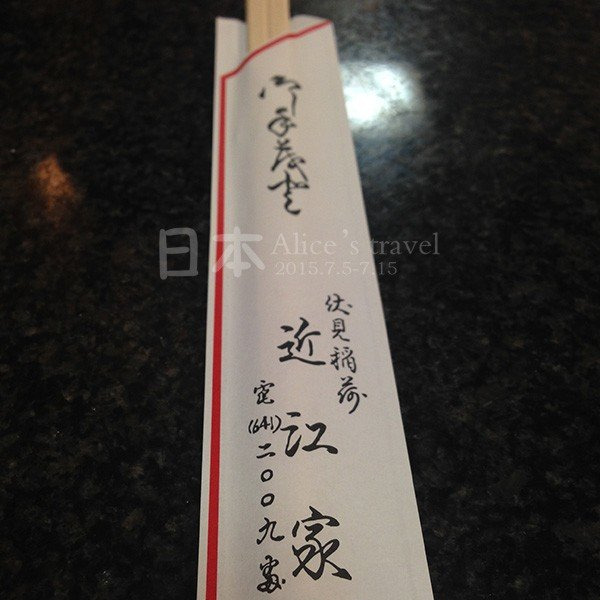 御手茂登
日本
Alice's travel
2015.7.5-7.15
伏見稲荷
近江家
電(641)二〇〇九番